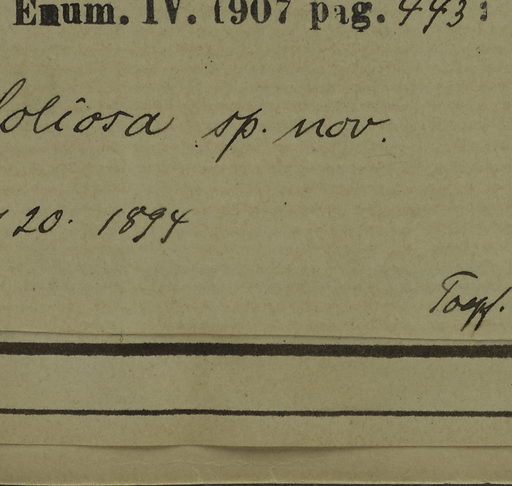 Enum. IV. (1907 pag. 443:
foliosa sp. nov.
20. 1894
Toepf.